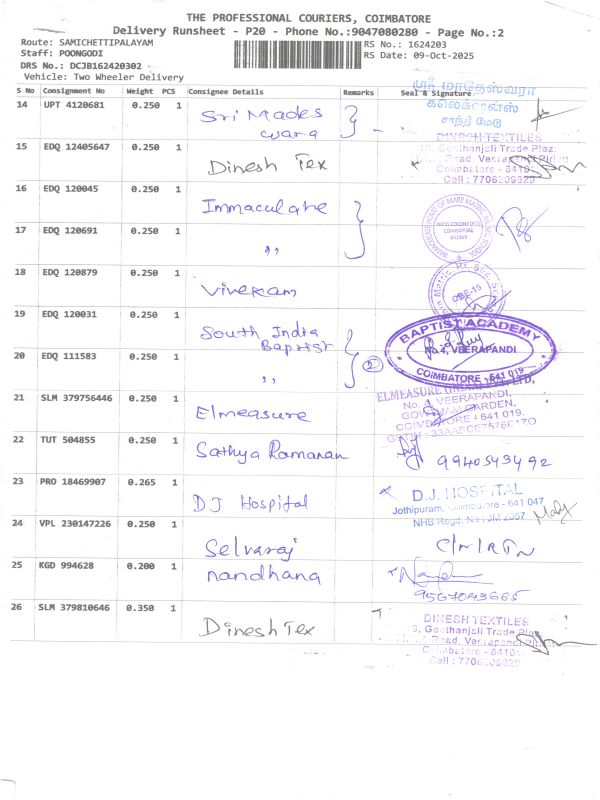 THE PROFESSIONAL COURIERS, COIMBATORE
Delivery Runsheet - P20 - Phone No.:9047080280 - Page No.:2
Route: SAMICHETTIPALAYAM
RS No.: 1624203
Staff: POONGODI
RS Date: 09-Oct-2025
DRS No.: DCJB162420302
Vehicle: Two Wheeler Delivery
S No Consignment No Weight PCS Consignee Details Remarks Seal & Signature
14 UPT 4120681 0.250 1 Sri Mades wara
ஸ்ரீ மாதேஸ்வரா
கலெக்ஷன்ஸ்
சாந்தி மேடு
15 EDQ 12405647 0.250 1 Dinesh Tex
DINESH TEXTILES
Geethanjali Trade Plaz
Road, Veerapandi Pirivu
Coimbatore - 6410
Cell : 7708209329
16 EDQ 120045 0.250 1 Immaculate
17 EDQ 120691 0.250 1 ,,
COIMBATORE
641019
18 EDQ 120879 0.250 1 Vivekam
19 EDQ 120031 0.250 1 South India Baptist
20 EDQ 111583 0.250 1 ,, 2
BAPTIST ACADEMY
No.4, VEERAPANDI
COIMBATORE - 641 019
21 SLM 379756446 0.250 1 Elmeasure
ELMEASURE (INDIA) PVT. LTD,
VEERAPANDI,
GARDEN,
COIMBATORE - 641 019.
22 TUT 504855 0.250 1 Sathya Ramanan
9940543492
23 PRO 18469907 0.265 1 DJ Hospital
D.J. HOSPITAL
Jothipuram, Coimbatore - 641 047
NHS Regd. No
24 VPL 230147226 0.250 1 Selvaraj
C/N/RTN
25 KGD 994628 0.200 1 nandhana
9567043665
26 SLM 379810646 0.350 1 Dinesh Tex
DINESH TEXTILES
3, Geethanjali Trade Plaz
Road, Veerapandi Pirivu
Coimbatore - 6410
Cell : 7708209329